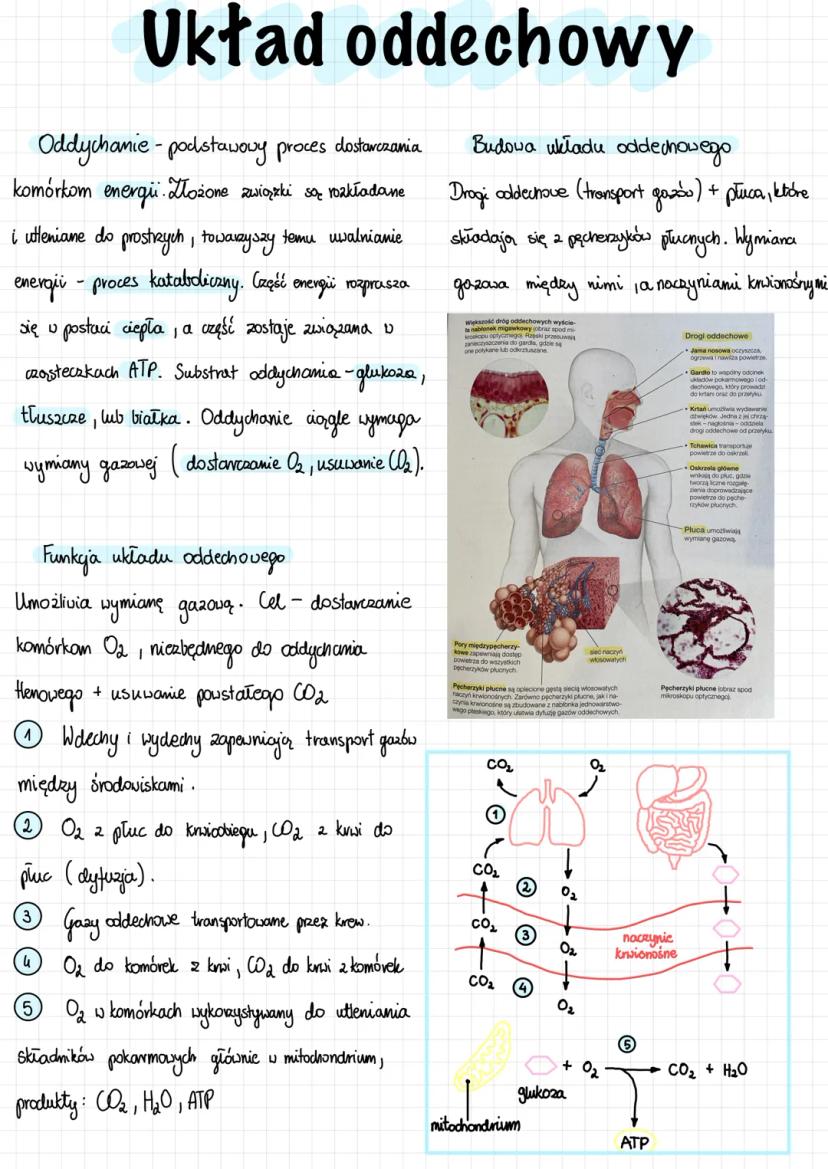 Układ oddechowy
Oddychanie - podstawowy proces dostarczania
komórkom energii. Złożone związki są rozkładane
i utleniane do prostrzych, towarzyszy temu uwalnianie
energii - proces kataboliczny. Część energii rozprasza
się w postaci ciepła, a część zostaje związana w
cząsteczkach ATP. Substrat oddychania - glukoza,
tłuszcze, lub białka. Oddychanie ciągle wymaga
wymiany gazowej (dostarczanie O₂, usuwanie CO₂).
Funkcja układu oddechowego
Umożliwia wymianę gazową. Cel - dostarczanie
komórkom O₂, niezbędnego do oddychania
tlenowego + usuwanie powstałego CO₂
1 Wdechy i wydechy zapewniają transport gazów
między środowiskami.
2 O₂ z płuc do krwiobiegu, CO₂ z krwi do
płuc (dyfuzja).
3 Gazy oddechowe transportowane przez krew.
4 O₂ do komórek z krwi, CO₂ do krwi z komórek
5 O₂ w komórkach wykorzystywany do utleniania
składników pokarmowych głównie w mitochondrium,
produkty: CO₂, H₂O, ATP
Budowa układu oddechowego
Drogi oddechowe (transport gazów) + płuca, które
składają się z pęcherzyków płucnych. Wymiana
gazowa między nimi, a naczyniami krwionośnymi
Większość dróg oddechowych wyście-
ła nabłonek migawkowy (obraz spod mi-
kroskopu optycznego). Rzęski przesuwają
zanieczyszczenia do gardła, gdzie są
one połykane lub odkrztuszane.
Drogi oddechowe
• Jama nosowa oczyszcza,
ogrzewa i nawilża powietrze.
• Gardło to wspólny odcinek
układów pokarmowego i od-
dechowego, który prowadzi
do krtani oraz do przełyku.
• Krtań umożliwia wydawanie
dźwięków. Jedna z jej chrzą-
stek – nagłośnia – oddziela
drogi oddechowe od przełyku.
• Tchawica transportuje
powietrze do oskrzeli.
• Oskrzela główne
wnikają do płuc, gdzie
tworzą liczne rozgałę-
zienia doprowadzające
powietrze do pęche-
rzyków płucnych.
Płuca umożliwiają
wymianę gazową.
Pory międzypęcherzy-
kowe zapewniają dostęp
powietrza do wszystkich
pęcherzyków płucnych.
sieć naczyń
włosowatych
Pęcherzyki płucne są oplecione gęstą siecią włosowatych
naczyń krwionośnych. Zarówno pęcherzyki płucne, jak i na-
czynia krwionośne są zbudowane z nabłonka jednowarstwo-
wego płaskiego, który ułatwia dyfuzję gazów oddechowych.
Pęcherzyki płucne (obraz spod
mikroskopu optycznego).
CO₂ O₂
1
CO₂ 2 O₂
CO₂ 3 O₂
naczynie
krwionośne
CO₂ 4 O₂
5
+ O₂ CO₂ + H₂O
glukoza
mitochondrium
ATP